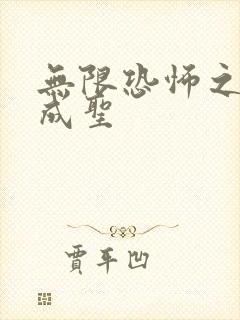 無限恐怖之
成聖
賈平凹